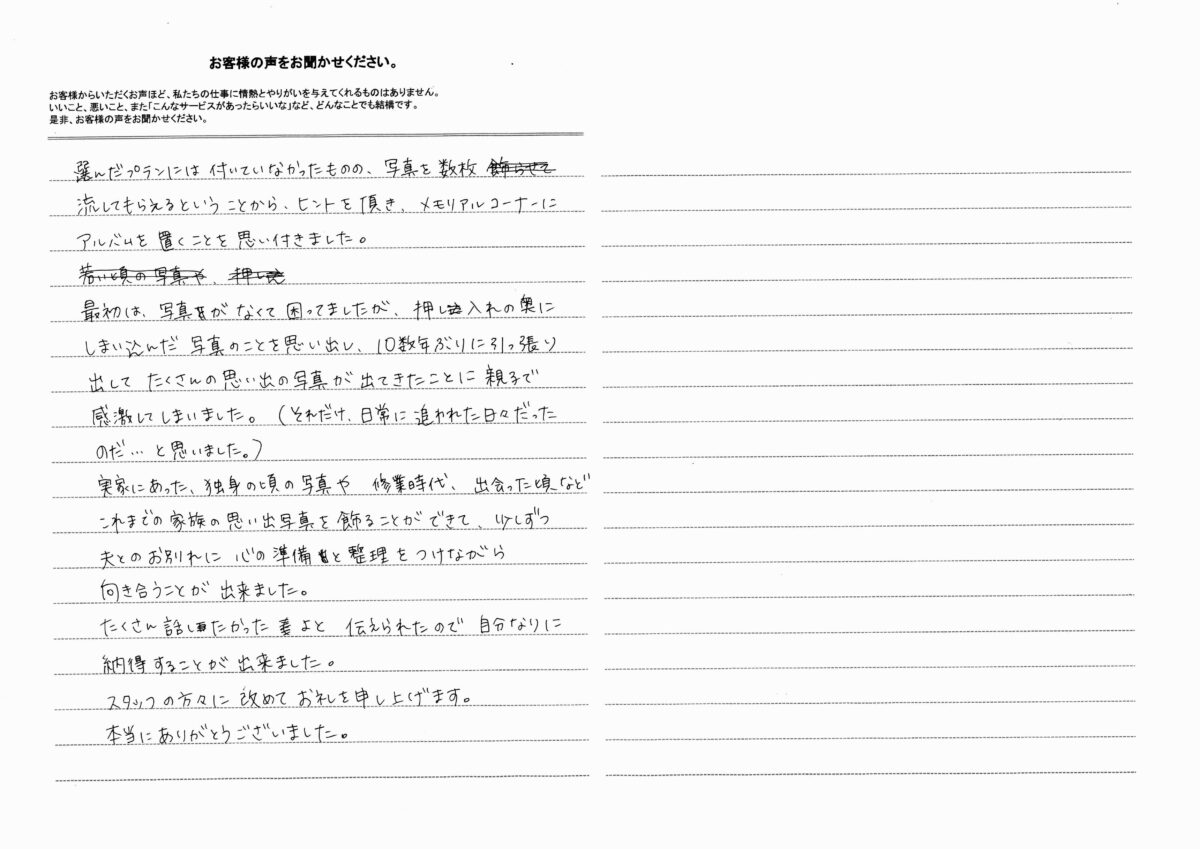 お客様の声をお聞かせください。
お客様からいただくお声ほど、私たちの仕事に情熱とやりがいを与えてくれるものはありません。
いいこと、悪いこと、また「こんなサービスがあったらいいな」など、どんなことでも結構です。
是非、お客様の声をお聞かせください。
選んだプランには付いていなかったものの、写真を数枚 飾らせて
流してもらえるということから、ヒントを頂き、メモリアルコーナーに
アルバムを置くことを思い付きました。
若い頃の写真や、押し
最初は、写真がなくて困ってましたが、押し入れの奥に
しまい込んだ写真のことを思い出し、10数年ぶりに引っ張り
出して たくさんの思い出の写真が出てきたことに親子で
感激してしまいました。(それだけ、日常に追われた日々だった
のだ…と思いました。)
実家にあった、独身の頃の写真や 修業時代、出会った頃など
これまでの家族の思い出写真を飾ることができて、少しずつ
夫とのお別れに心の準備と整理をつけながら
向き合うことが出来ました。
たくさん話したかった よと 伝えられたので自分なりに
納得することが出来ました。
スタッフの方々に改めてお礼を申し上げます。
本当にありがとうございました。